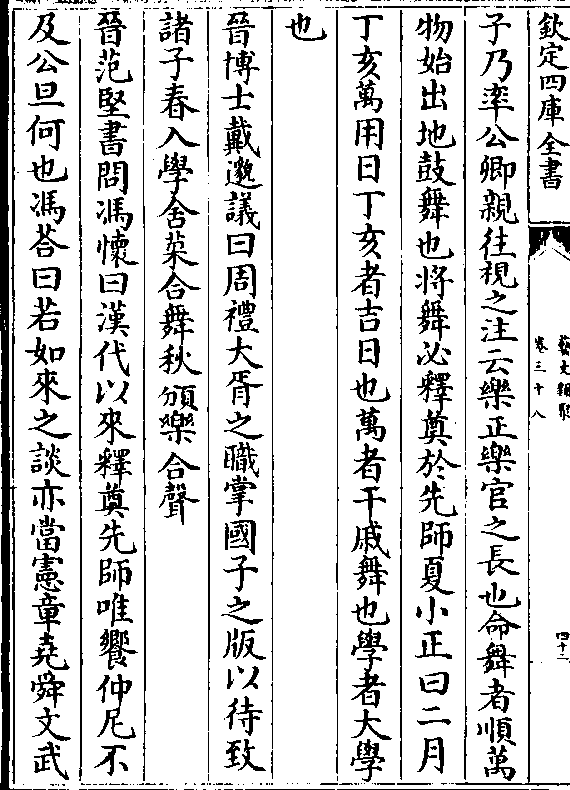 欽定四庫全書
藝文類聚
卷三十八
四十二
子乃率公卿親往視之注云樂正樂官之長也命舞者順萬
物始出地鼓舞也將舞必釋奠於先師夏小正曰二月
丁亥萬用日丁亥者吉日也萬者干戚舞也學者大學
也
晉博士戴邈議曰周禮大胥之職掌國子之版以待致
諸子春入學舍菜合舞秋頒樂合聲
晉范堅書問馮懷曰漢代以來釋奠先師唯饗仲尼不
及公旦何也馮荅曰若如來之談亦當憲章堯舜文武